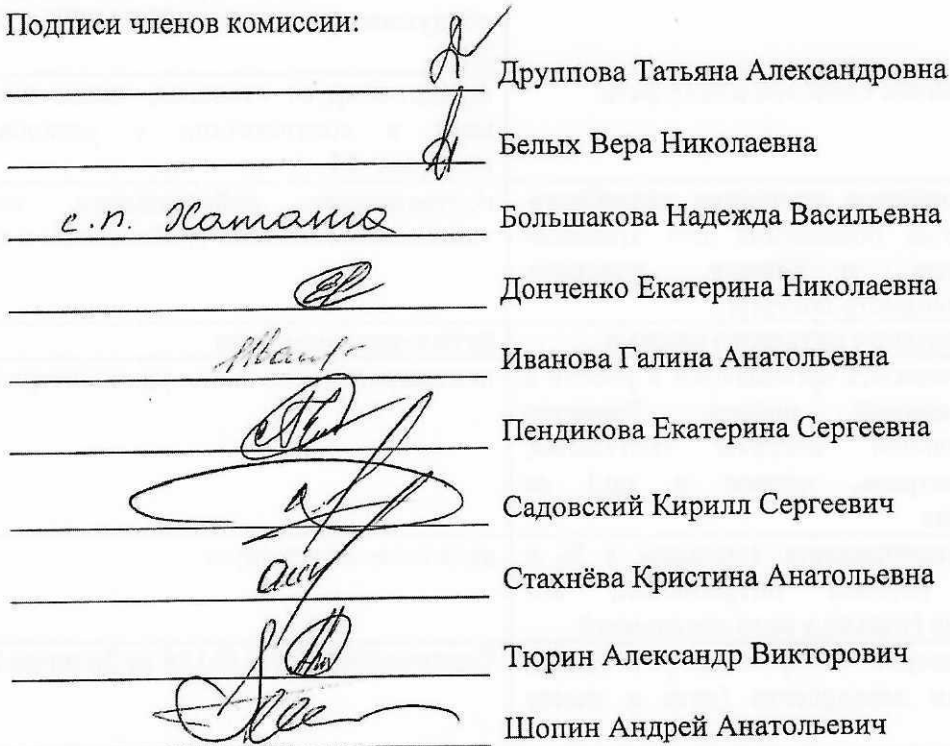 Подписи членов комиссии:
Друппова Татьяна Александровна
Белых Вера Николаевна
с.п. Большакова Надежда Васильевна
Донченко Екатерина Николаевна
Иванова Галина Анатольевна
Пендикова Екатерина Сергеевна
Садовский Кирилл Сергеевич
Стахнёва Кристина Анатольевна
Тюрин Александр Викторович
Шопин Андрей Анатольевич